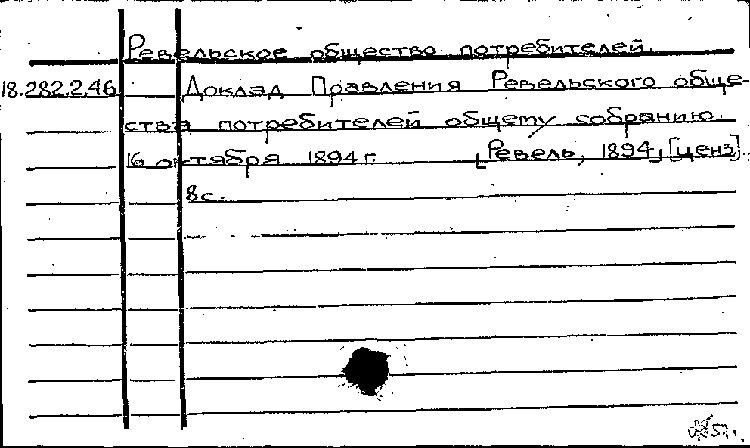 Ревельское общество потребителей.
18.282.2.46 Доклад Правления Ревельского обще-
ства потребителей общему собранию.
16 октября 1894 г. [Ревель, 1894], [ценз].
8 с.